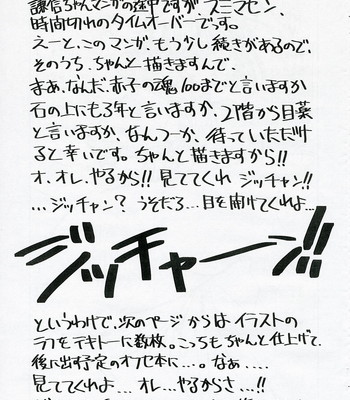 謙信ちゃんマンガの途中ですが スミマセン、
時間切れのタイムオーバーです。
えーと、このマンガ、もう少し続きがあるので、
そのうち、ちゃんと描きますんで、
まぁ、なんだ、赤子の魂100までと言いますか
石の上にも3年と言いますか、2階から目薬
と言いますか、なんつーか、待っていただけ
ると幸いです。ちゃんと描きますから!!
オ、オレ、やるから!! 見ててくれ ジッチャン!!
…ジッチャン? うそだろ…目を開けてくれよ…
ジッチャーン!!
というわけで、次のページからは イラストの
ラフをテキトーに数枚。こっちもちゃんと仕上げて、
後に出す予定のオフセ本に…。なぁ…。
見ててくれよ… オレ…やるからさ…!!